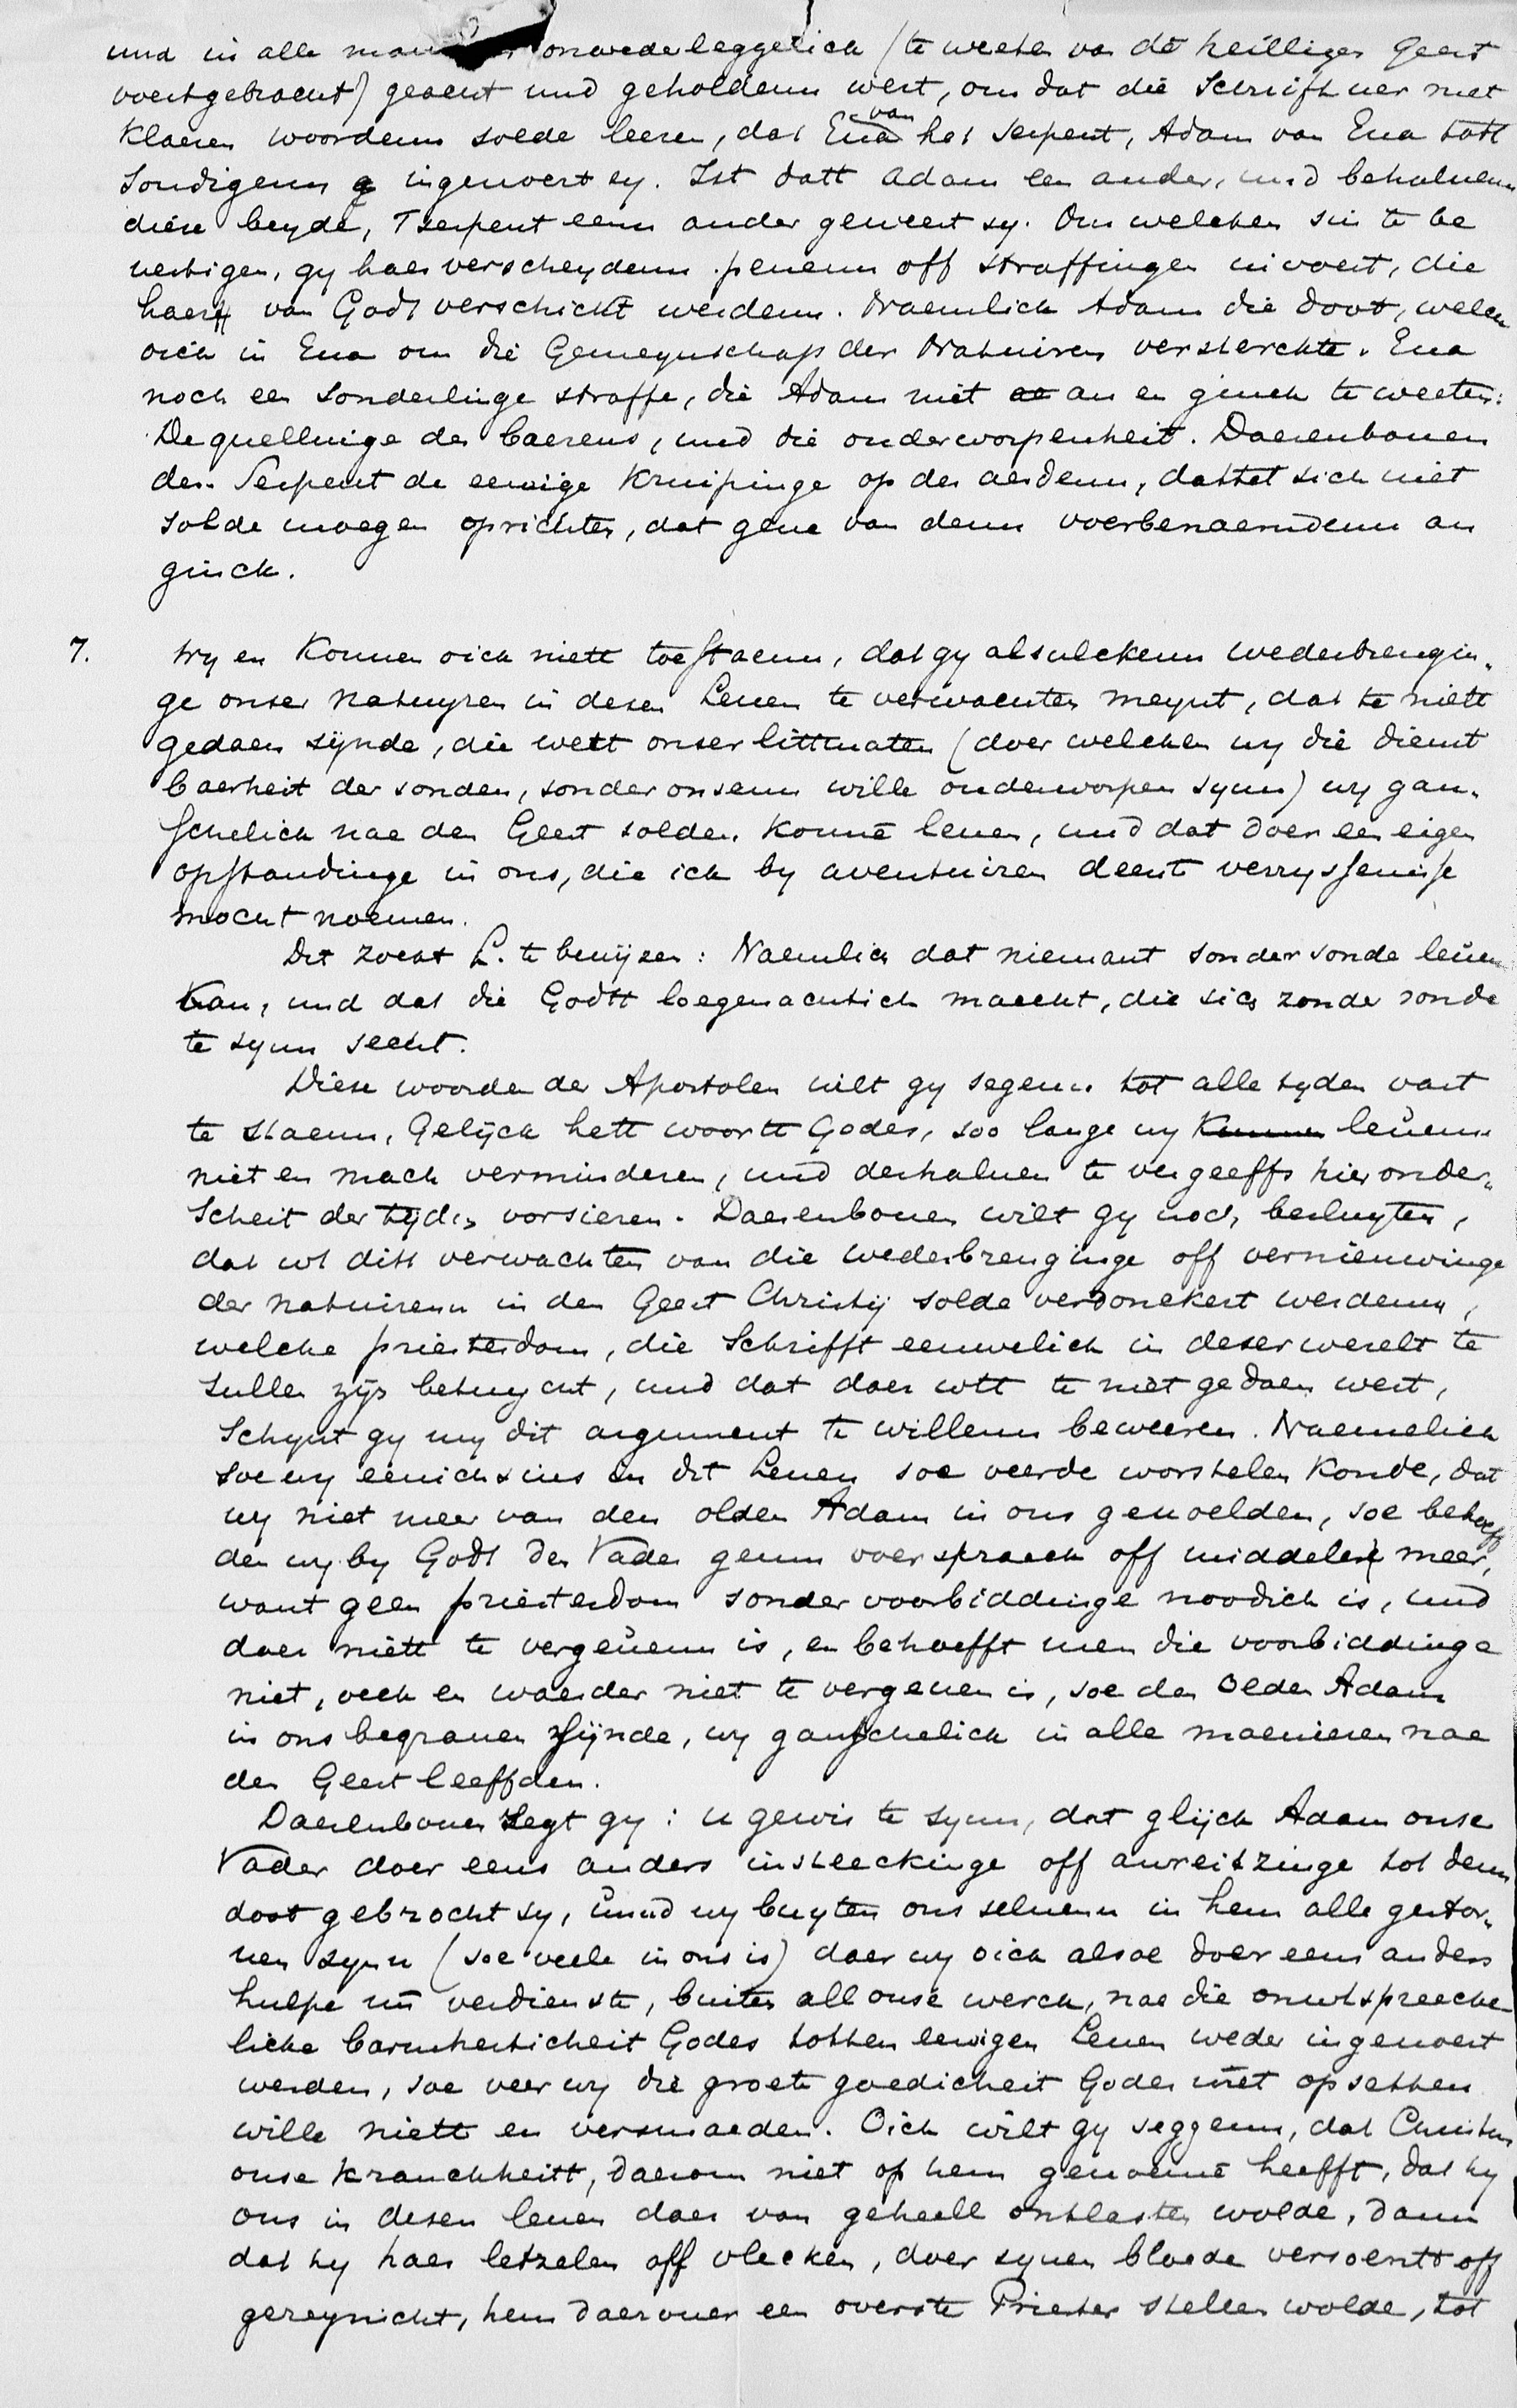 und in alle man onwederleggelick (te weeten van de heilliger Geest
voertgebracht) geacht und geholdenn wert, om dat die Schrifft uer met
klaeren woordenn solde leeren, dat Eua van het serpent, Adam van Eua tott
Sondigenn ingeuoert sy. Ist datt Adam een ander, und behaluenn
diese beyde, T serpent eenn ander geweest sy. Om welcken sin te be
uestigen, gy haer verscheydenn penenn off straffingen invoert, die
haer van Godt verschickt werdenn. Naemlick Adam die doot, welcke
oick in Eua om die Gemeynschap der Natuiren versterckte. Eua
noch een sonderlinge straffe, die Adam niet an en ginck te weeten:
De quellinge des baerens, und die onderworpenheit. Daerenbouen
der Serpent de eewige kruipinge op der aerdenn, dattet sich niet
solde moegen oprichten, dat gene van denn voerbenaemdenn an
ginck.
7. Wy en konnen oick niett toestaenn, dat gy alsulckenn wederbrengin„
ge onser natuyren in desen Leuen te verwachten meynt, dat te niett
gedaen sijnde, die wett onser littmaten (doer welcken wy die dienst
baerheit der sonden, sonder onsenn wille onderworpen synn) wy gan„
schelick nae den Geest solden konne leuen, und dat doer een eigen
opstandinge in ons, die ick by auentuiren deerste verryssenisse
mocht noemen.
Dit zoeckt L. te bewijzen: Naemlick dat niemant sonder sonde leuen
kan, und dat die Godtt loegenachtich maeckt, die sich zonder sonde
te synn seecht.
Diese woorden der Apostolen wilt gy segenn tot alle tyden vast
te staenn, Gelijck hett woortt Godes, soo lange wy leuenn
niet en mach verminderen, und derhaluen te vergeeffs hier onder„
scheit der tijden vorsieren. Daerenbouen wilt gy noch besluyten,
dat wt ditt verwachten van die wederbrenginge off vernieuwinge
der natuirenn in den Geest Christij solde verdonckert werdenn,
welcke priesterdom, die Schrifft eeuwelick in deser werelt te
sullen zijn betuycht, und dat daer wtt te niet gedaen wert,
Schynt gy my dit argument te willenn beweeren. Naemelick
soe wy eenichsins in dit Leuen soe veerde worstelen konde, dat
wy niet meer van den olden Adam in ons geuoelden, soe behoeff
den wy by Godt den Vader genn voerspraeck off middeler meer,
want geen priesterdom sonder voorbiddinge noodich is, und
daer niett te vergeuenn is, en behoefft men die voorbiddinge
niet, oeck en waerder niet te vergeuen is, soe den Oeden Adam
in ons begrauen sijnde, wy ganschelick in alle maenieren nae
den Geest leeffden.
Daerenbouen segt gy: u gewis te synn, dat glijck Adam onse
Vader doer eens anders insteeckinge off anreitzinge tot denn
doot gebrocht sy, unnd wy buyten ons seluenn in hem alle gestor„
uen synn (soe veele in ons is) daer wy oick alsoe doer eens anders
hulpe un verdienste, buiten all onse werck, nae die onwtspreecke
licke barmhertichheit Godes totten eewigen Leuen weder ingeuoert
werden, soe veer wy die groete goedicheit Godes met opsetten
wille niett en versmaeden. Oick wilt gy seggenn, dat Christus
onse kranckheitt, daerom niet op hem genoeme heefft, dat hy
ons in desen leuen daer van geheell ontlasten wolde, dann
dat hy haer letzelen off vlecken, doer synen bloede versoentt off
gereynicht, hem daerouer een overste Priester stellen wolde, tot